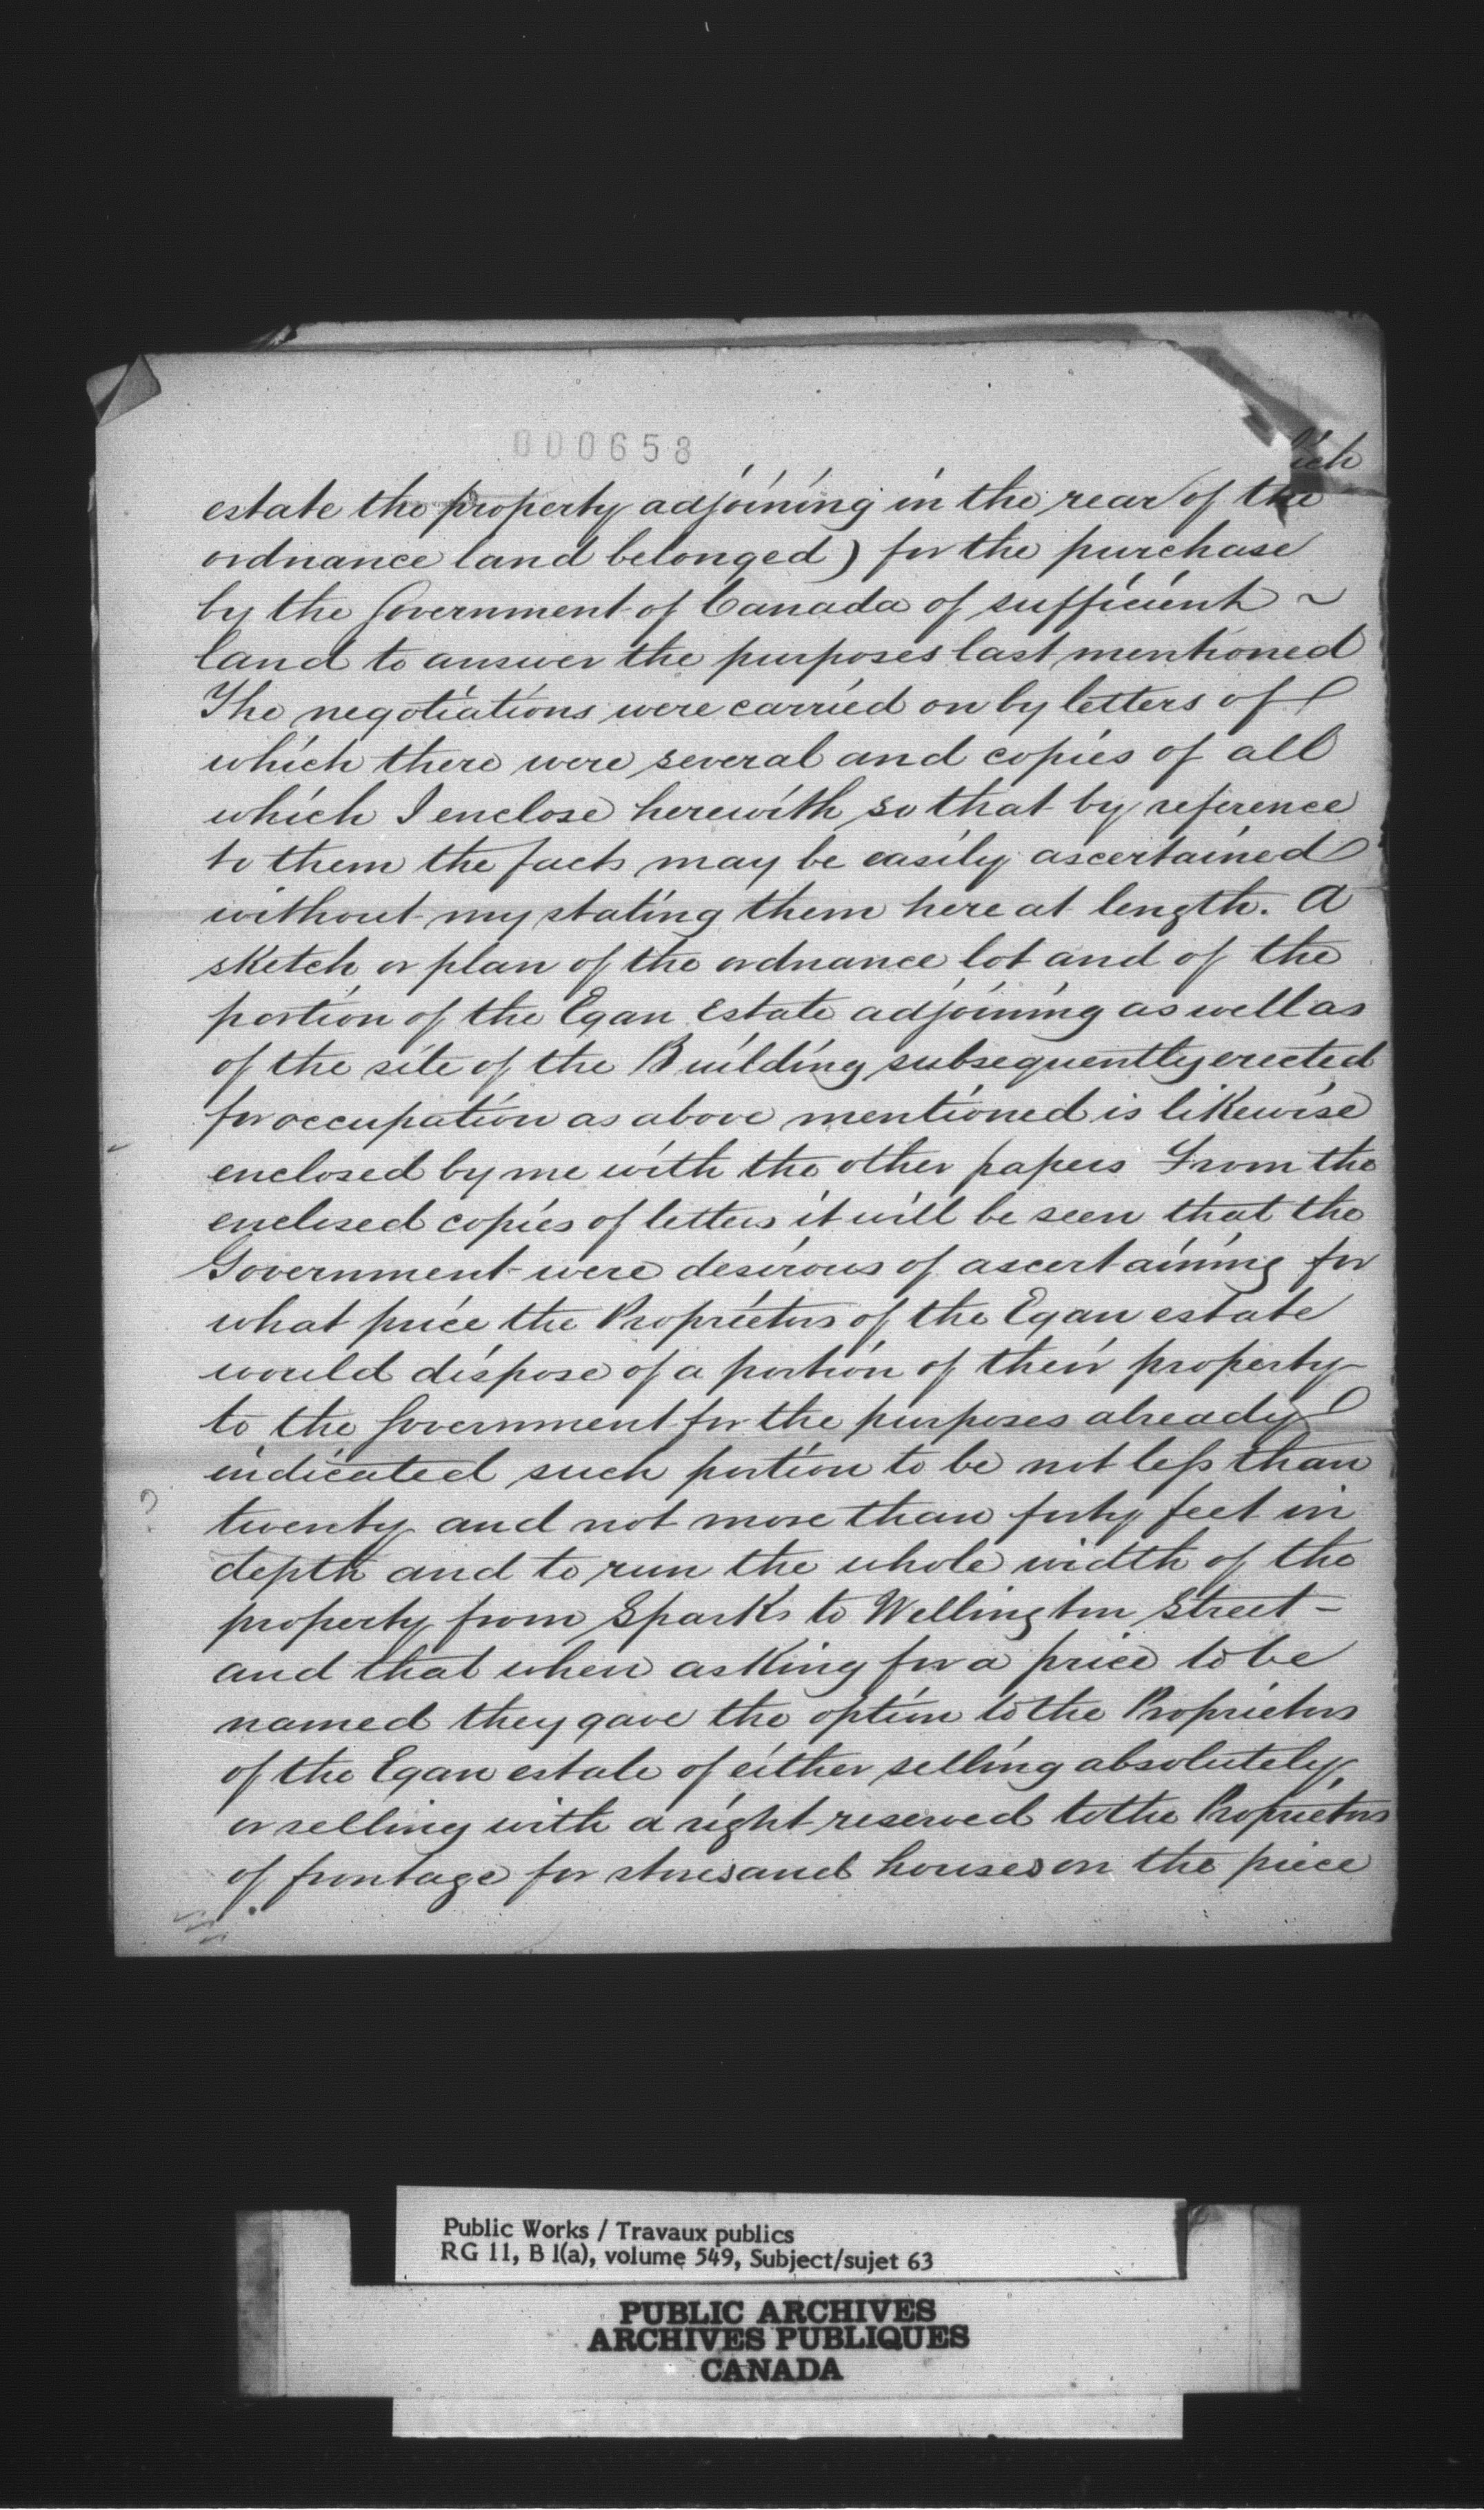 000658
ich
estate the property adjoining in the rear of the
ordnance land belonged) for the purchase
by the Government of Canada of sufficient ~
land to answer the purposes last mentioned
The negotiations were carried on by letters of
which there were several and copies of all
which I enclose herewith so that by reference
to them the facts may be easily ascertained
without my stating them here at length. A
sketch or plan of the ordnance lot and of the
portion of the Egan Estate adjoining as well as
of the site of the Building subsequently erected
for occupation as above mentioned is likewise
enclosed by me with the other papers From the
enclosed copies of letters it will be seen that the
Government were desirous of ascertaining for
what price the Proprietors of the Egan estate
would dispose of a portion of their property
to the Government for the purposes already
indicated such portion to be not less than
?
twenty and not more than forty feet in
depth and to run the whole width of the
property from Sparks to Wellington Street -
and that when asking for a price to be
named they gave the option to the Proprietors
of the Egan estate of either selling absolutely
or selling with a right reserved to the Proprietors
of frontage for stores and houses on the piece
Public Works / Travaux publics
RG 11, B 1(a), volume 549, Subject/sujet 63
PUBLIC ARCHIVES
ARCHIVES PUBLIQUES
CANADA